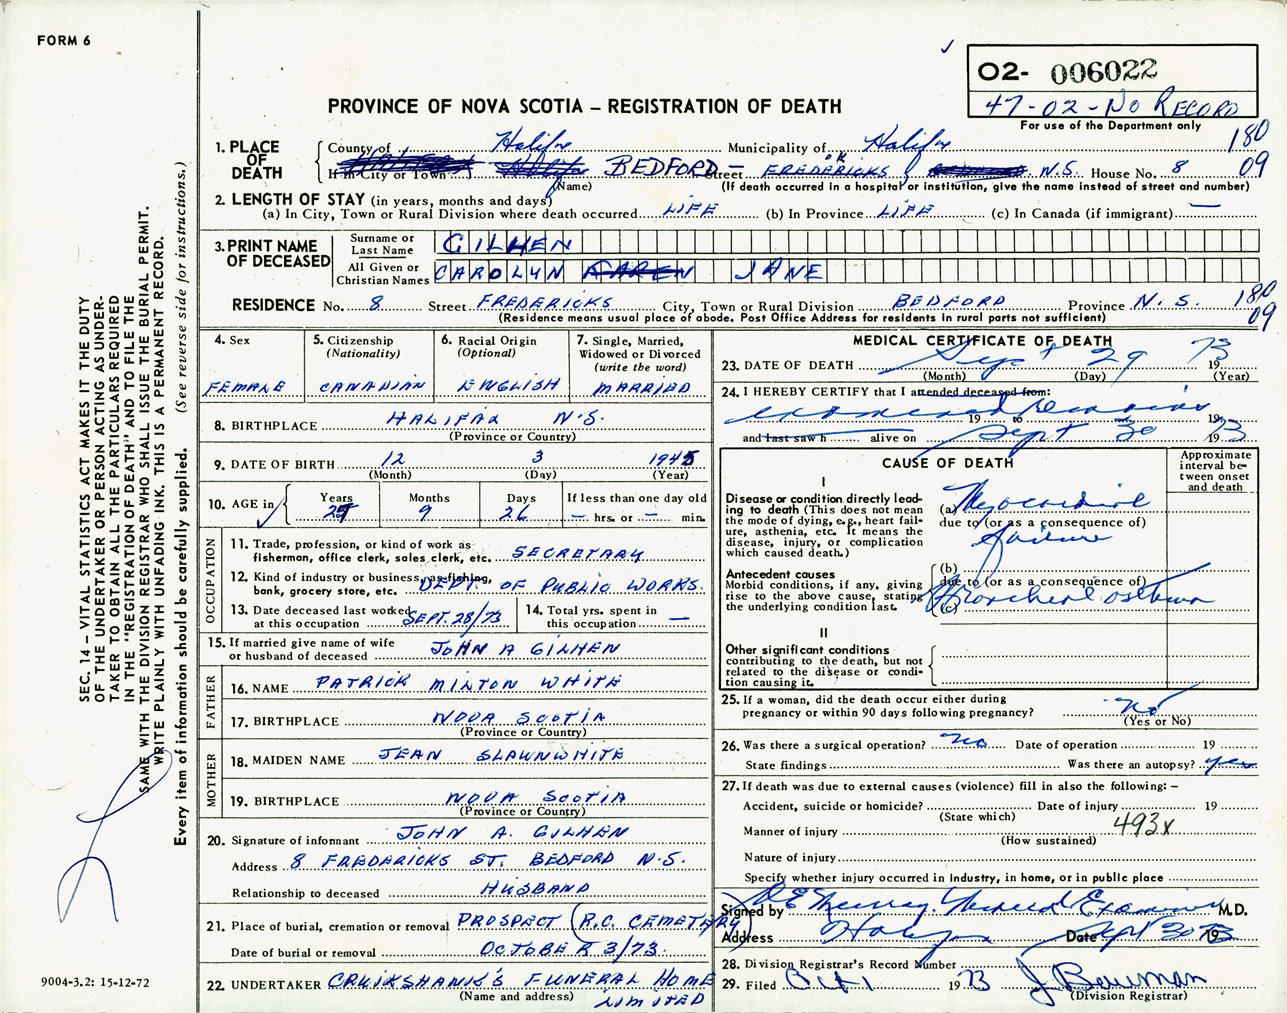 FORM 6
O2- 006022
47-02-No RECORD
For use of the Department only
PROVINCE OF NOVA SCOTIA – REGISTRATION OF DEATH
180
09
1. PLACE OF DEATH
County of Halifx Municipality of Halifx
If in City or Town BEDFORD – Street FREDERICKS N.S. House No. 8
(Name) (If death occurred in a hospital or institution, give the name instead of street and number)
2. LENGTH OF STAY (in years, months and days)
(a) In City, Town or Rural Division where death occurred LIFE (b) In Province LIFE (c) In Canada (if immigrant) —
3. PRINT NAME OF DECEASED
Surname or Last Name GILHEN
All Given or Christian Names CAROLYN KAREN JANE
RESIDENCE No. 8 Street FREDERICKS City, Town or Rural Division BEDFORD Province N.S. 180
09
(Residence means usual place of abode. Post Office Address for residents in rural parts not sufficient)
4. Sex FEMALE
5. Citizenship (Nationality) CANADIAN
6. Racial Origin (Optional) ENGLISH
7. Single, Married, Widowed or Divorced (write the word) MARRIED
8. BIRTHPLACE HALIFAX N.S.
(Province or Country)
9. DATE OF BIRTH 12 3 1945
(Month) (Day) (Year)
10. AGE in Years Months Days If less than one day old
9 26 – hrs. or – min.
OCCUPATION
11. Trade, profession, or kind of work as
fisherman, office clerk, sales clerk, etc. SECRETARY
12. Kind of industry or business, as fishing,
bank, grocery store, etc. DEPT. OF PUBLIC WORKS.
13. Date deceased last worked
at this occupation SEPT. 28/73
14. Total yrs. spent in
this occupation —
15. If married give name of wife
or husband of deceased JOHN A GILHEN
FATHER
16. NAME PATRICK MILTON WHITE
17. BIRTHPLACE NOVA SCOTIA
(Province or Country)
MOTHER
18. MAIDEN NAME JEAN SLAWNWHITE
19. BIRTHPLACE NOVA SCOTIA
(Province or Country)
20. Signature of informant JOHN A. GILHEN
Address 8 FREDERICKS ST. BEDFORD N.S.
Relationship to deceased HUSBAND
21. Place of burial, cremation or removal PROSPECT (R.C. CEMETERY)
Date of burial or removal OCTOBER 3/73.
22. UNDERTAKER CRUIKSHANK'S FUNERAL HOME
(Name and address) LIMITED
MEDICAL CERTIFICATE OF DEATH
23. DATE OF DEATH Sept 29 1973
(Month) (Day) (Year)
24. I HEREBY CERTIFY that I attended deceased from:
examined remains 19 to 19
and last saw h alive on Sept 30 1973
CAUSE OF DEATH
Approximate interval between onset and death
I
Disease or condition directly leading to death (This does not mean the mode of dying, e.g., heart failure, asthenia, etc. It means the disease, injury, or complication which caused death.)
(a) Myocardial
due to (or as a consequence of)
failure
Antecedent causes
Morbid conditions, if any, giving rise to the above cause, stating the underlying condition last.
(b)
due to (or as a consequence of)
(c) Bronchial asthma
II
Other significant conditions
contributing to the death, but not related to the disease or condition causing it.
25. If a woman, did the death occur either during
pregnancy or within 90 days following pregnancy? No
(Yes or No)
26. Was there a surgical operation? no Date of operation 19
State findings Was there an autopsy? yes
27. If death was due to external causes (violence) fill in also the following: –
Accident, suicide or homicide? Date of injury 19
(State which) 493x
Manner of injury
(How sustained)
Nature of injury
Specify whether injury occurred in industry, in home, or in public place
Signed by Murray. Medical Examiner M.D.
Address Halifax Date Sept 30 1973
28. Division Registrar's Record Number
29. Filed Oct 1 1973 J Bowman
(Division Registrar)
SEC. 14 – VITAL STATISTICS ACT MAKES IT THE DUTY
OF THE UNDERTAKER OR PERSON ACTING AS UNDER-
TAKER TO OBTAIN ALL THE PARTICULARS REQUIRED
IN THE "REGISTRATION OF DEATH" AND TO FILE THE
SAME WITH THE DIVISION REGISTRAR WHO SHALL ISSUE THE BURIAL PERMIT.
WRITE PLAINLY WITH UNFADING INK. THIS IS A PERMANENT RECORD.
Every item of information should be carefully supplied. (See reverse side for instructions.)
9004-3.2: 15-12-72